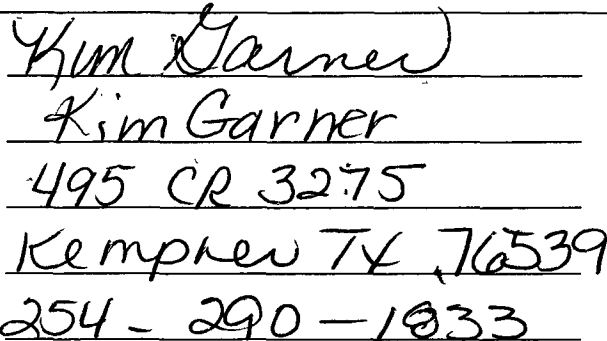 Kim Garner
Kim Garner
495 CR 3275
Kempner TX 76539
254-290-1833